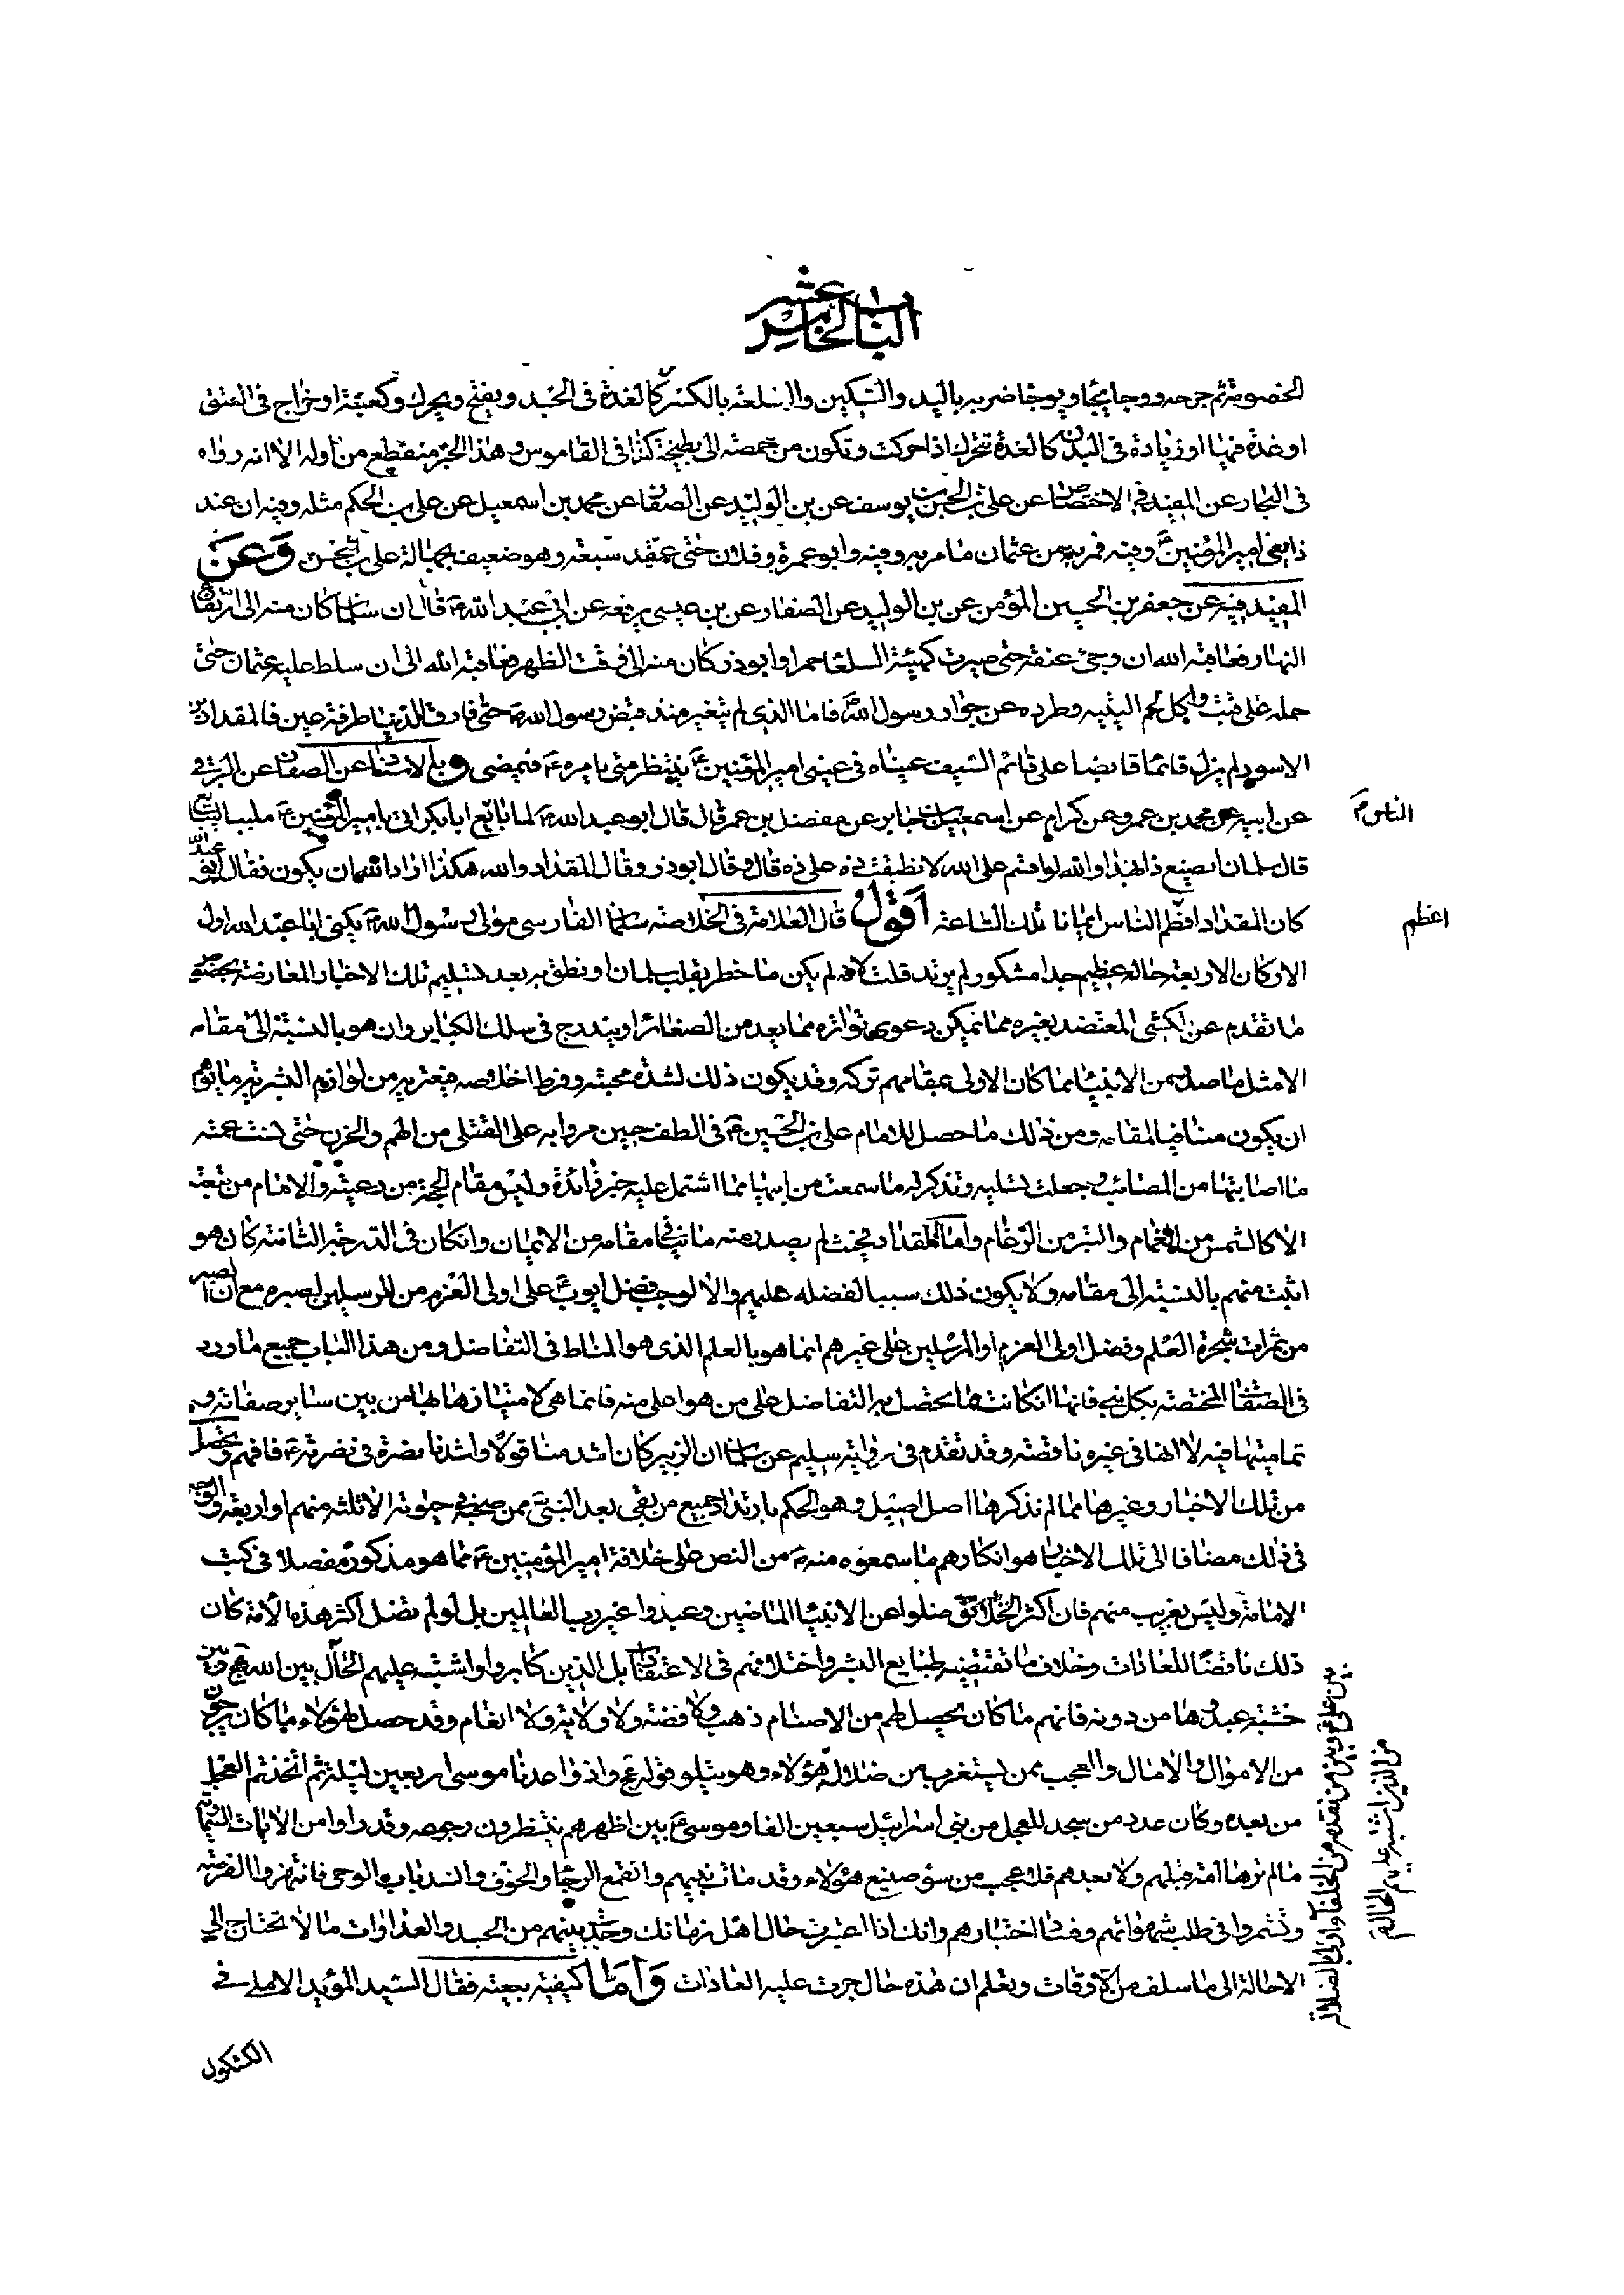 الباب الخامس عشر
الخصومة ثم جرحه ووجا يجا ويوجا ضربه باليد والسكين والسلعة بالكسر كالغدة في الجسد ويفتح ويحرك وكعنبة او خراج في العنق
او غدة فيها او زيادة في البدن كالغدة تتحرك اذا حركت وتكون من حمصة الى بطيخة كذا في القاموس وهذا الخبر منقطع من اوله الا انه رواه
في البحار عن المفيد في الاختصاص عن علي بن الحسين بن يوسف عن بن الوليد عن الصفار عن محمد بن اسمعيل عن علي بن الحكم مثله وفيه ان عند
ذا يعني امير المؤمنين ع وفيه فمر به من عثمان ما مر به وفيه وابو عمرة وفلان حتى عقد سبعة وهو ضعيف بجهالة علي بن الحسن وعن
المفيد فيه عن جعفر بن الحسين المؤمن عن بن الوليد عن الصفار عن بن عيسى يرفعه عن ابي عبد الله ع قال ان سلمان كان منه الى ارتفاع
النهار فعاقبه الله ان وجئ عنقه حتى صيرت كهيئة السلعة حمراء وابو ذر كان منه الى وقت الظهر فعاقبه الله الى ان سلط عليه عثمان حتى
حمله على قتب واكل لحم اليتيه وطرده عن جوار رسول الله ص فاما الذي لم يتغير منذ قبض رسول الله ص حتى فارق الدنيا طرفة عين فالمقداد بن
الاسود لم يزل قائما قابضا على قائم السيف عيناه في عيني امير المؤمنين ع ينتظر متى يامره ع فيمضي وبالاسناد عن الصفار عن البرقي
عن ابيه عن محمد بن عمرو عن كرام عن اسمعيل بن جابر عن مفضل بن عمر قال قال ابو عبد الله ع لما بايع ابا بكر اتي بامير المؤمنين ع ملببا ليبايع
الناس م
قال سلمان ايصنع ذا بهذا والله لو اقسم على الله لانطبقت ذه على ذه قال وقال ابو ذر وقال المقداد والله هكذا اراد الله ان يكون فقال ابو عبد الله
كان المقداد اعظم الناس ايمانا تلك الساعة اقول قال العلامة في الخلاصة سلمان الفارسي مولى رسول الله ص يكنى ابا عبد الله اول
اعظم
الاركان الاربعة حاله عظيم جدا مشكور لم يرتد قلت لانه لم يكن ما خطر بقلب سلمان او نطق به بعد تسليم تلك الاخبار المعارضة بخصوص
ما تقدم عن الكشي المعتضد بغيره مما يمكن دعوى تواتره مما يعد من الصغائر او يندرج في سلك الكباير وان هو بالنسبة الى مقامه
الامثل ما صدر من الانبياء مما كان الاولى بمقامهم تركه وقد يكون ذلك لشدة محبته وفرط اخلاصه فيعتريه من لوازم البشرية ما يوهم
ان يكون منافيا لمقامه ومن ذلك ما حصل للامام علي بن الحسين ع في الطف حين مروا به على القتلى من الهم والحزن حتى نست عمته
ما اصابتها من المصائب وجعلت تسليه وتذكر له ما سمعت من ابيها مما اشتمل عليه خبر زائدة وليس مقام الحجة من رعيته والامام من تبعته
الا كالشمس من الغمام والتبر من الرغام واما المقداد فحيث لم يصدر منه ما ينافي مقامه من الايمان وان كان في الدرجة الثامنة كان هو
اثبت منهم بالنسبة الى مقامه ولا يكون ذلك سببا لفضله عليهم والا لوجب فضل ايوب ع على اولى العزم من المرسلين لصبره مع ان الصبر
من ثمرات شجرة العلم وفضل اولى العزم او المرسلين على غيرهم انما هو بالعلم الذي هو المناط في التفاضل ومن هذا الباب جميع ما ورد
في الصفات المختصة بكل نبي فانها ان كانت مما يحصل به التفاضل على من هو اعلى منه فانما هي لامتيازها لها من بين ساير صفاته و
تماميتها فيه لا انها في غيره ناقصة وقد تقدم في رواية سليم عن سلمان ان الزبير كان اشد منا قولا واشدنا بصرة في نصرته ع فافهم ويحصل
من تلك الاخبار وغيرها مما لم نذكرها اصل اصيل وهو الحكم بارتداد جميع من بقي بعد النبي ص ممن صحبه في حيوته الا ثلثة منهم او اربعة والوجه
في ذلك مضافا الى تلك الاخبار هو انكارهم ما سمعوه منه ص من النص على خلافة امير المؤمنين ع مما هو مذكور مفصلا في كتب
الامامة وليس بغريب منهم فان اكثر الخلائق ضلوا عن الانبياء الماضين وعبدوا غير رب العالمين بل لو لم تضل اكثر هذه الامة كان
ذلك ناقضا للعادات وخلاف ما تقتضيه طبايع البشر واختلافهم في الاعتقادات بل الذين كابروا واشتبه عليهم الحال بين الله عج وبين
خشبة عبدوها من دونه فانهم ما كان يحصل لهم من الاصنام ذهب ولا فضة ولا ولاية ولا انعام وقد حصل لهؤلاء ما كان يرجون
من الاموال والامال والعجب ممن يستغرب من ضلالة هؤلاء وهو يتلو قوله عج واذ واعدنا موسى اربعين ليلة ثم اتخذتم العجل
من بعده وكان عدد من سجد للعجل من بني اسرائيل سبعين الفا وموسى ع بين اظهرهم ينتظرون رجوعه وقد راوا من الايات السماوية
ما لم ترها امة قبلهم ولا بعدهم فلا عجب من سوء صنيع هؤلاء وقد مات نبيهم وانقمع الرجاء والخوف وانسد باب الوحي فانتهزوا الفرصة
وتشمروا في طلب شهواتهم وفسد اختبارهم وانك اذا اعتبرت حال اهل زمانك وجد بينهم من الحسد والعداوات ما لا تحتاج الى
الاحالة الى ما سلف من الاوقات وتعلم ان هذه حال جرت عليه العادات واما كيفية بيعته فقال السيد المؤيد الاملي في
بين علي ع وبين من تقدمه من الخلفاء اولى بالضلالة
من الذين اشتبه عليهم الحال
الكشكول